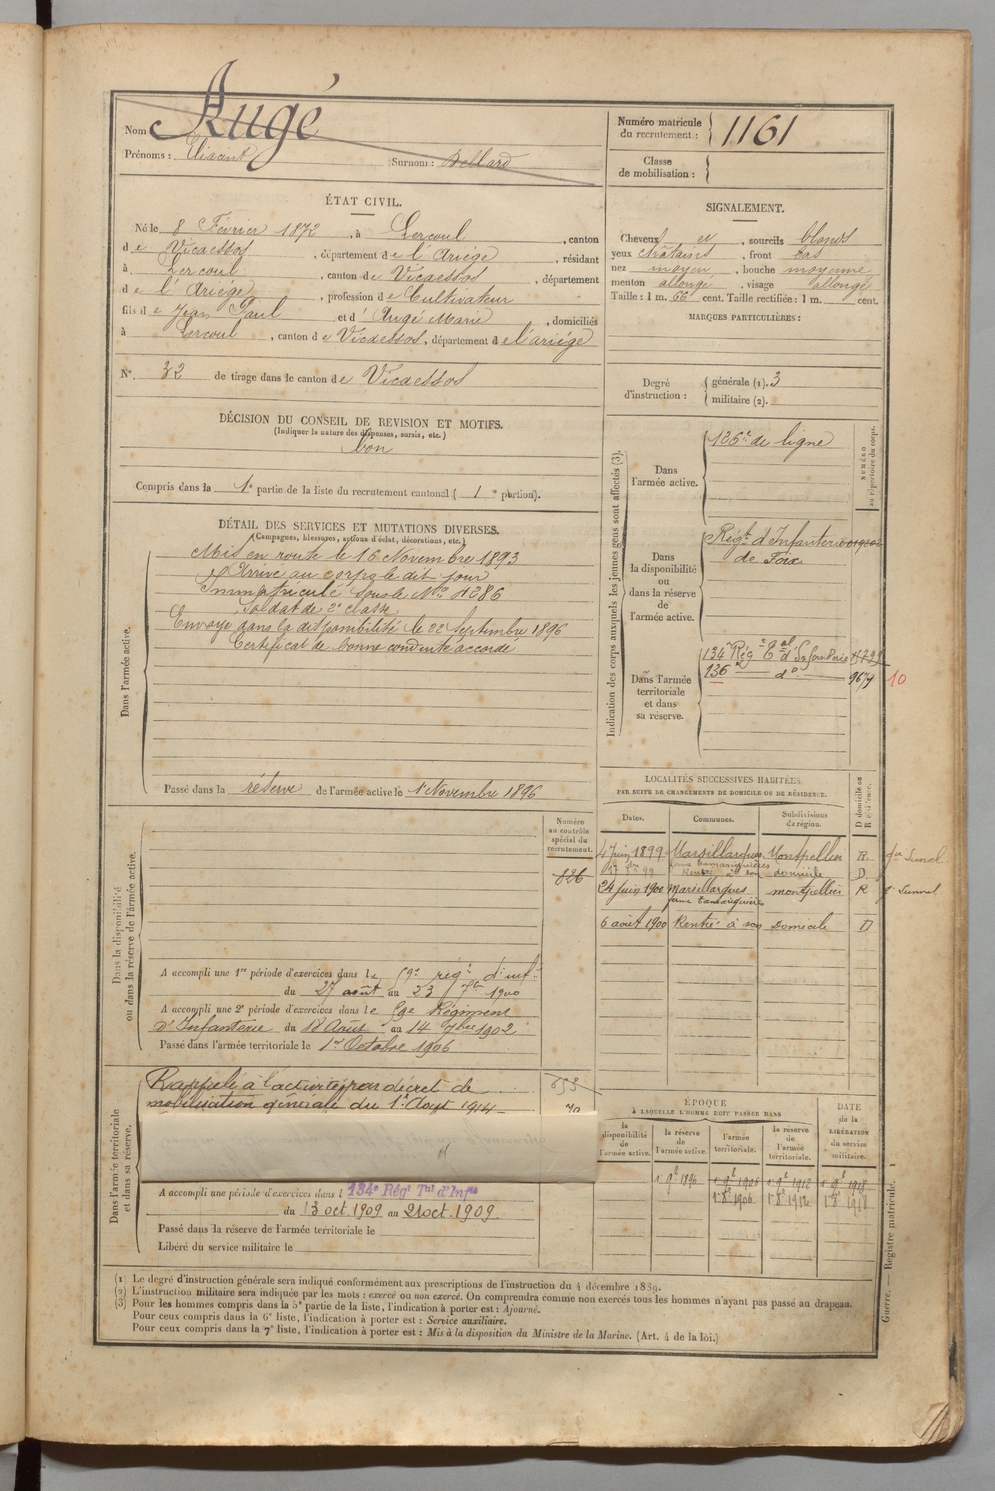 Nom Augé
Prénoms : Surnom : Dellard
Numéro matricule du recrutement : 1161
Classe de mobilisation :
ÉTAT CIVIL.
Né le 8 Février 1872, à Lercoul, canton
de Vicdessos, département de l'Ariège, résidant
à Lercoul, canton de Vicdessos, département
de l'Ariége, profession de Cultivateur
fils de Jean Paul et d'Augé Marie, domiciliés
à Lercoul, canton de Vicdessos, département de l'ariège
N° 32 de tirage dans le canton de Vicdessos
DÉCISION DU CONSEIL DE REVISION ET MOTIFS.
(Indiquer la nature des dispenses, sursis, etc.)
bon
Compris dans la 1e partie de la liste du recrutement cantonal ( 1e portion).
SIGNALEMENT.
Cheveux et, sourcils blonds
yeux chatains, front bas
nez moyen, bouche moyenne
menton allongé, visage allongé
Taille : 1 m. 66 cent. Taille rectifiée : 1 m. cent.
MARQUES PARTICULIÈRES :
Degré d'instruction : générale (1). 3
militaire (2).
DÉTAIL DES SERVICES ET MUTATIONS DIVERSES.
(Campagnes, blessures, actions d'éclat, décorations, etc.)
Dans l'armée active.
Mis en route le 16 Novembre 1893
Arrivé au corps le dit jour
Immatriculé sous le No 4286
Soldat de 2e classe
Envoyé dans la disponibilité le 22 Septembre 1896
Certificat de bonne conduite accordé
Passé dans la réserve de l'armée active le 1 Novembre 1896
Indication des corps auxquels les jeunes gens sont affectés (3).
NUMÉRO au répertoire du corps.
Dans l'armée active.
126e de ligne
Dans la disponibilité ou dans la réserve de l'armée active.
Régt d'Infanterie
de Foix
Dans l'armée territoriale et dans sa réserve.
134e Rég t Eal d'Infanterie
136 do 9677 10
LOCALITÉS SUCCESSIVES HABITÉES
PAR SUITE DE CHANGEMENTS DE DOMICILE OU DE RÉSIDENCE.
Dates. Communes. Subdivisions de région. D domicile ou R résidence.
4 Juin 1899 Marsillargues Montpellier R. gie Lunel
Rentré à son domicile D.
24 juin 1900 Marsillargues montpellier R
6 août 1900 Rentré à son Domicile D
Dans la disponibilité ou dans la réserve de l'armée active.
Numéro au contrôle spécial du recrutement.
826
A accompli une 1re période d'exercices dans le 59e rég. d'inf.
du 27 août au 23 7bre 1900
A accompli une 2e période d'exercices dans le 59e Régiment
d'Infanterie du 18 Août au 14 7bre 1902
Passé dans l'armée territoriale le 1er Octobre 1906
Dans l'armée territoriale et dans sa réserve.
Rappelé à l'activité par décret de
mobilisation générale du 1er Aout 1914
A accompli une période d'exercices dans l 134e Régt Tal d'Inf
du 13 oct 1909 au 21 oct. 1909.
Passé dans la réserve de l'armée territoriale le
Libéré du service militaire le
ÉPOQUE
À LAQUELLE L'HOMME DOIT PASSER DANS
DATE de la LIBÉRATION du service militaire.
la disponibilité de l'armée active. la réserve de l'armée active. l'armée territoriale. la réserve de l'armée territoriale.
(1) Le degré d'instruction générale sera indiqué conformément aux prescriptions de l'instruction du 4 décembre 1889.
(2) L'instruction militaire sera indiquée par les mots : exercé ou non exercé. On comprendra comme non exercés tous les hommes n'ayant pas passé au drapeau.
(3) Pour les hommes compris dans la 5e partie de la liste, l'indication à porter est : Ajourné.
Pour ceux compris dans la 6e liste, l'indication à porter est : Service auxiliaire.
Pour ceux compris dans la 7e liste, l'indication à porter est : Mis à la disposition du Ministre de la Marine. (Art. 4 de la loi.)
Guerre. — Registre matricule. 1